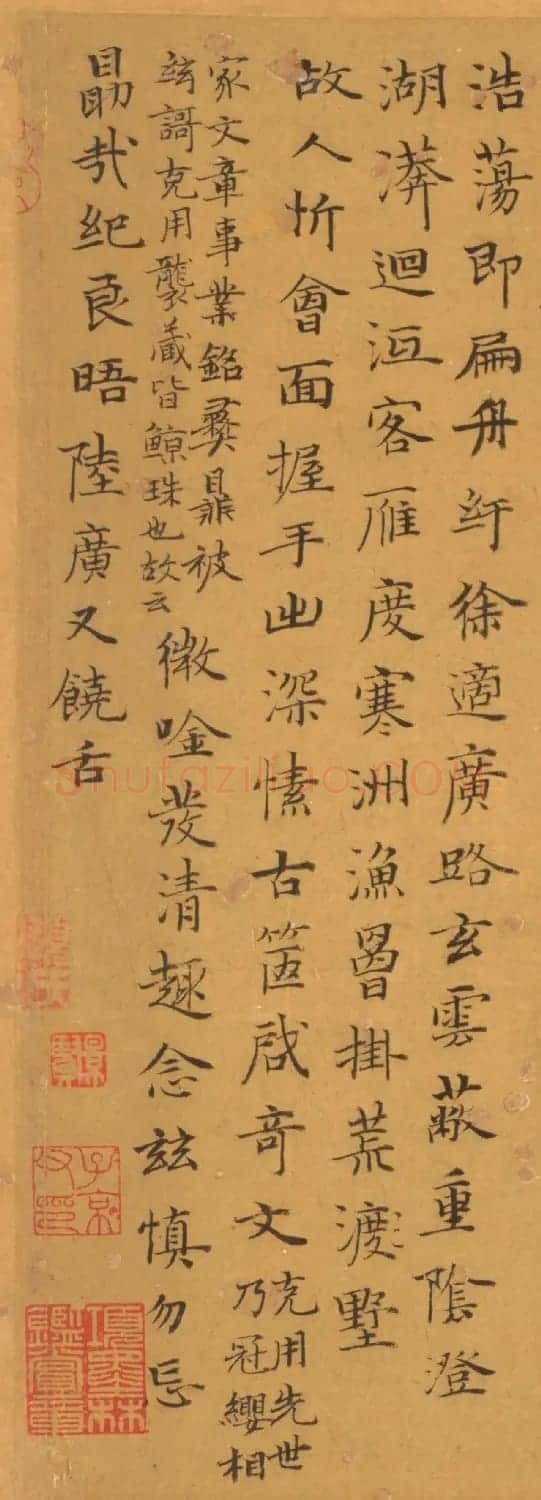 浩蕩即扁舟紆徐適廣路玄雲蔽重陰澄
湖漭迴沍客雁度寒洲漁罾掛荒渡墅
故人忻會面握手出深愫古篋啟奇文
克用先世
乃冠纓相
家文章事業銘彝鼎被
絃謌克用襲藏皆鯨珠也故云
微唫發清趣念茲慎勿忘
勗哉紀良晤陸廣又饒舌
子京父印
項墨林鑑賞章